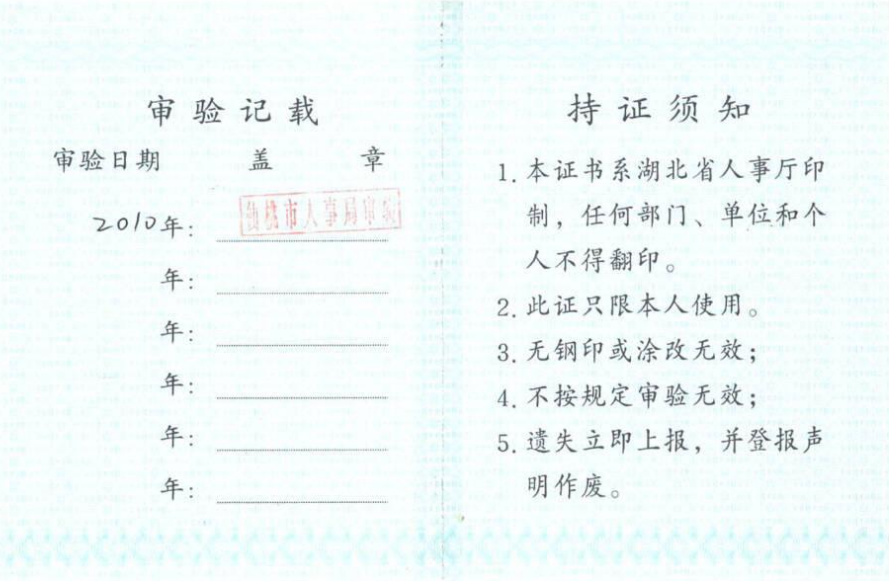 审验记载
审验日期 盖 章
2010年: 仙桃市人事局审验
年:
年:
年:
年:
年:
持证须知
1. 本证书系湖北省人事厅印
制，任何部门、单位和个
人不得翻印。
2. 此证只限本人使用。
3. 无钢印或涂改无效；
4. 不按规定审验无效；
5. 遗失立即上报，并登报声
明作废。